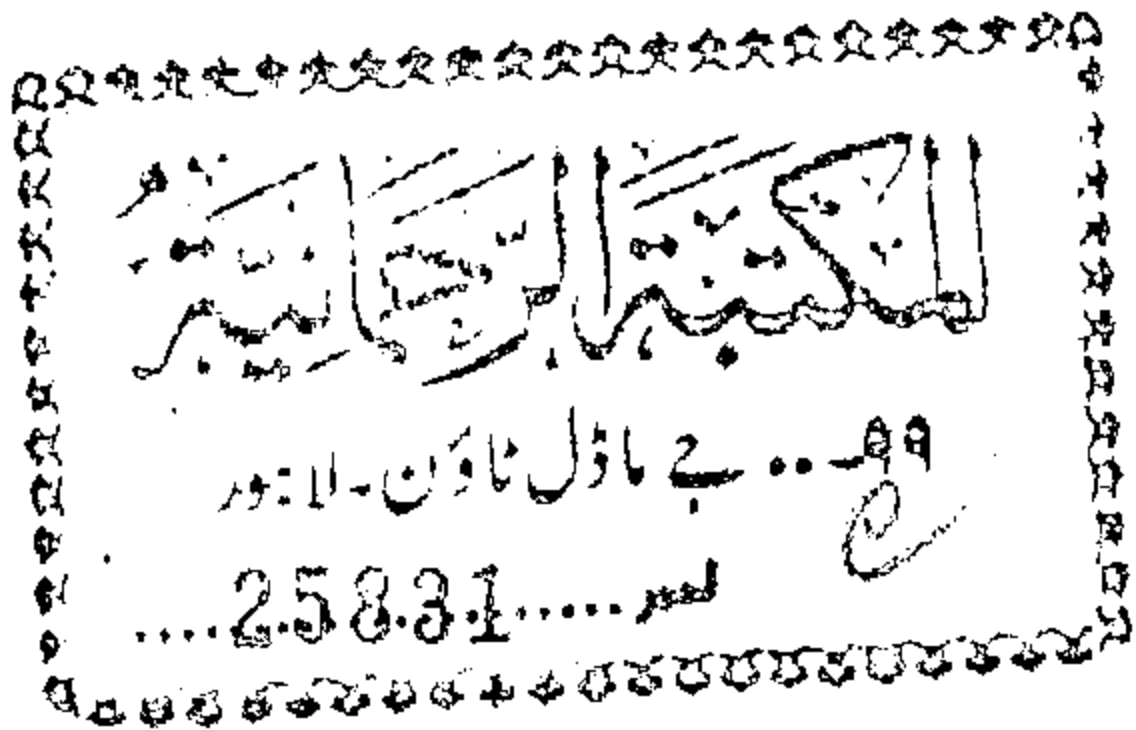 المكتبة الرحمانية
۹۹ ـ .. جے ماڈل ٹاؤن ـ لاہور
نمبر.....25831....